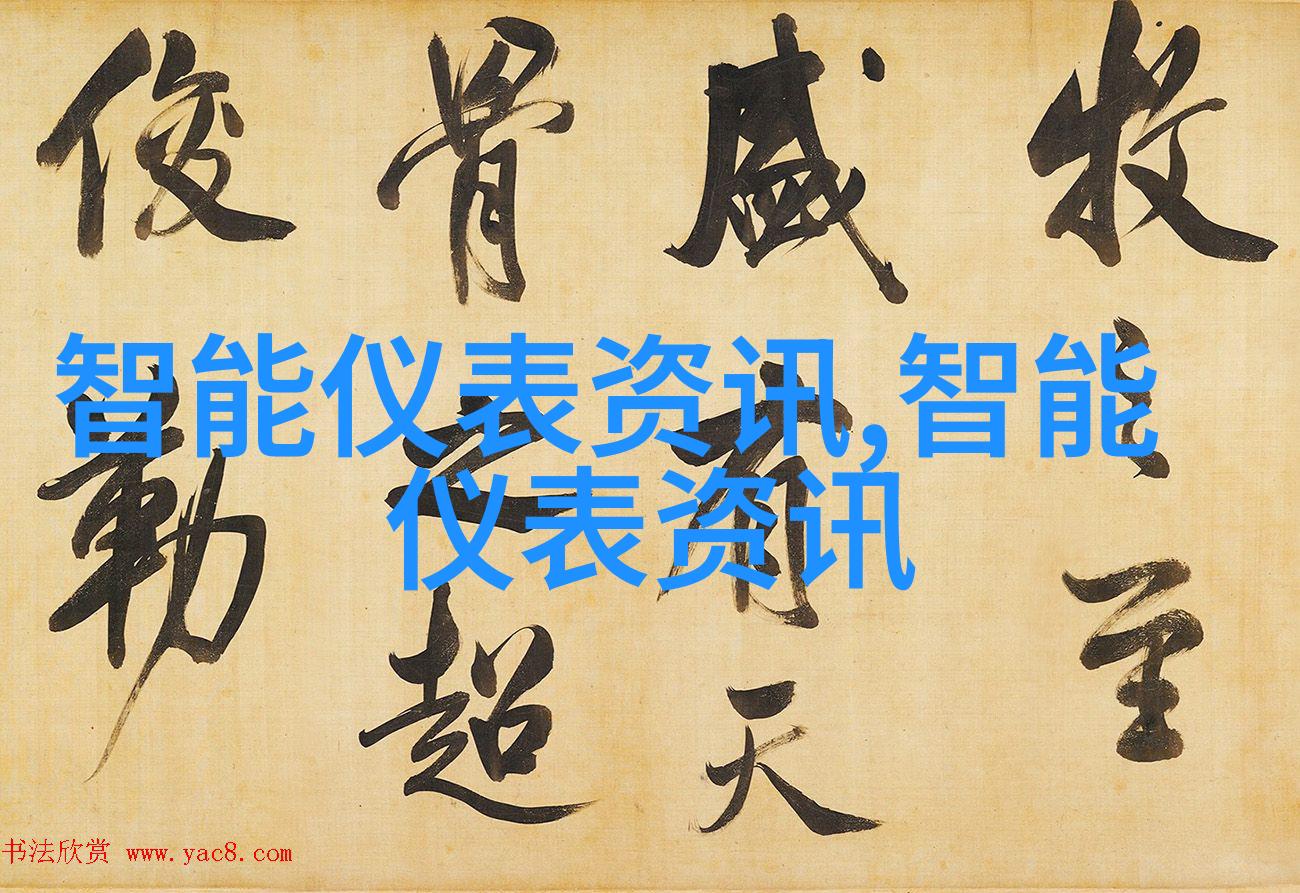 牧之至
盛有天
骨之超
俊勒
智能仪表资讯,智能
仪表资讯
书法欣赏 www.yac8.com